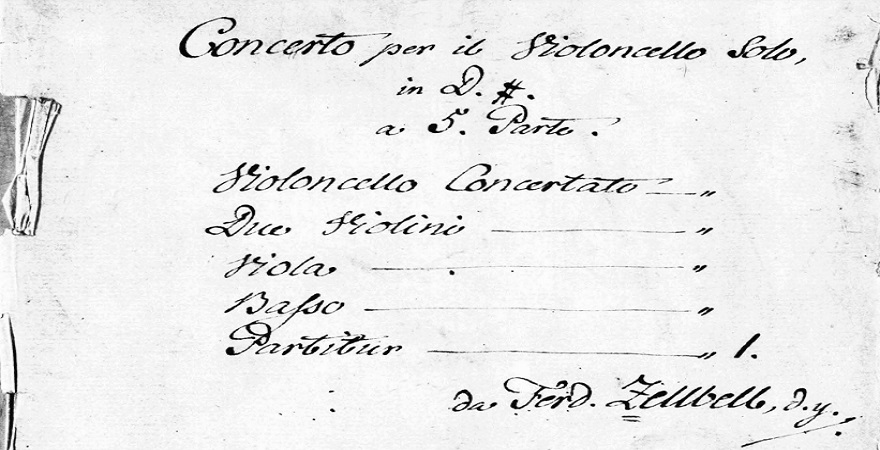 Concerto per il Violoncello Solo,
in D. #.
a 5. Parte.
Violoncello Concertato — „
Due Violini — „
Viola — „
Basso — „
Partitur — „ 1.
da Ferd. Zellbell, d.y.